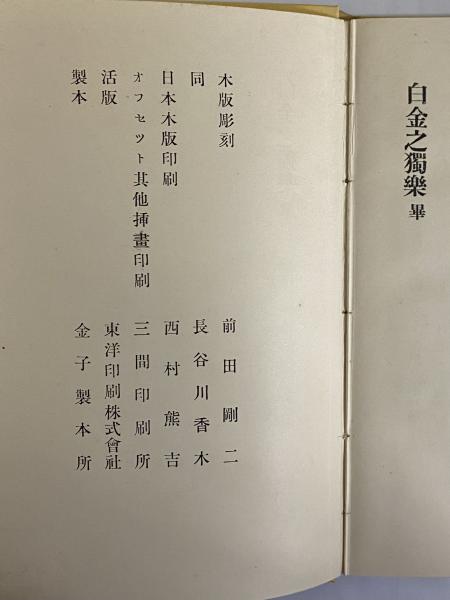 白金之獨樂 畢
木版彫刻 前田剛二
同 長谷川香木
日本木版印刷 西村熊吉
オフセット其他挿畫印刷 三間印刷所
活版 東洋印刷株式會社
製本 金子製本所